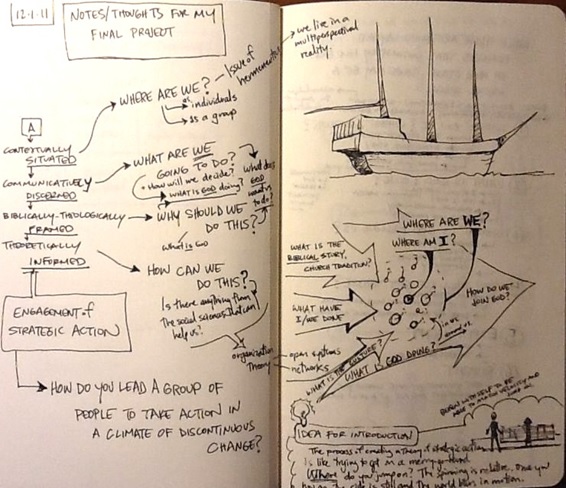 12.1.11
NOTES/THOUGHTS FOR MY
FINAL PROJECT
WHERE ARE WE? - Issue of
hermeneutics
as individuals
as a group
A
CONTEXTUALLY
SITUATED
COMMUNICATIVELY
DISCERNED
BIBLICALLY-THEOLOGICALLY
FRAMED
THEORETICALLY
INFORMED
WHAT ARE WE
GOING TO DO?
How will we decide?
WHAT IS GOD doing?
what does
GOD
want us
to do?
WHY SHOULD WE
DO THIS?
What is God
HOW CAN WE
DO THIS?
Is there anything from
The social sciences that can
help us?
organization
Theory
open systems
networks
ENGAGEMENT of
STRATEGIC ACTION
HOW DO YOU LEAD A GROUP OF
PEOPLE TO TAKE ACTION IN
A CLIMATE OF DISCONTINUOUS
CHANGE?
we live in a
multiperspectival
reality.
WHERE ARE WE?
WHERE AM I?
WHAT IS THE
BIBLICAL STORY,
CHURCH TRADITION?
WHAT HAVE
I/WE DONE
HOW DO WE
JOIN GOD?
in us
around us
WHAT IS THE CULTURE?
WHAT IS GOD DOING?
BEGIN WITH SELF TO BE
ABLE TO MATCH VELOCITY AND
IDEA FOR INTRODUCTION
The process of creating a theory of strategic action
Is like trying to get on a merry-go-round.
Where do you jump on? The spinning is relative, once you
the ride is still and the world is in motion.